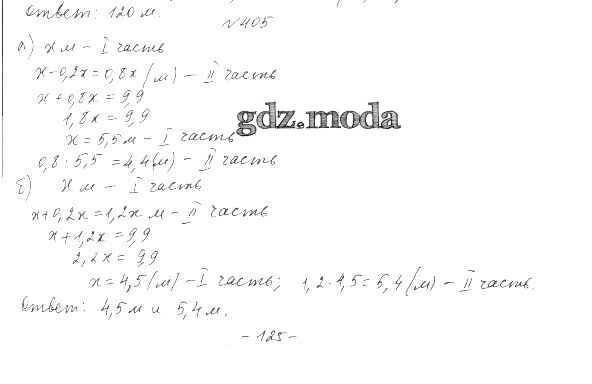 Ответ: 120 м.
№405
а) x м – I часть
x – 0,2x = 0,8x (м) – II часть
x + 0,8x = 9,9
1,8x = 9,9
gdz.moda
x = 5,5 м – I часть
0,8 · 5,5 = 4,4 (м) – II часть
б) x м – I часть
x + 0,2x = 1,2x м – II часть
x + 1,2x = 9,9
2,2x = 9,9
x = 4,5 (м) – I часть; 1,2 · 4,5 = 5,4 (м) – II часть.
Ответ: 4,5 м и 5,4 м.
– 125 –